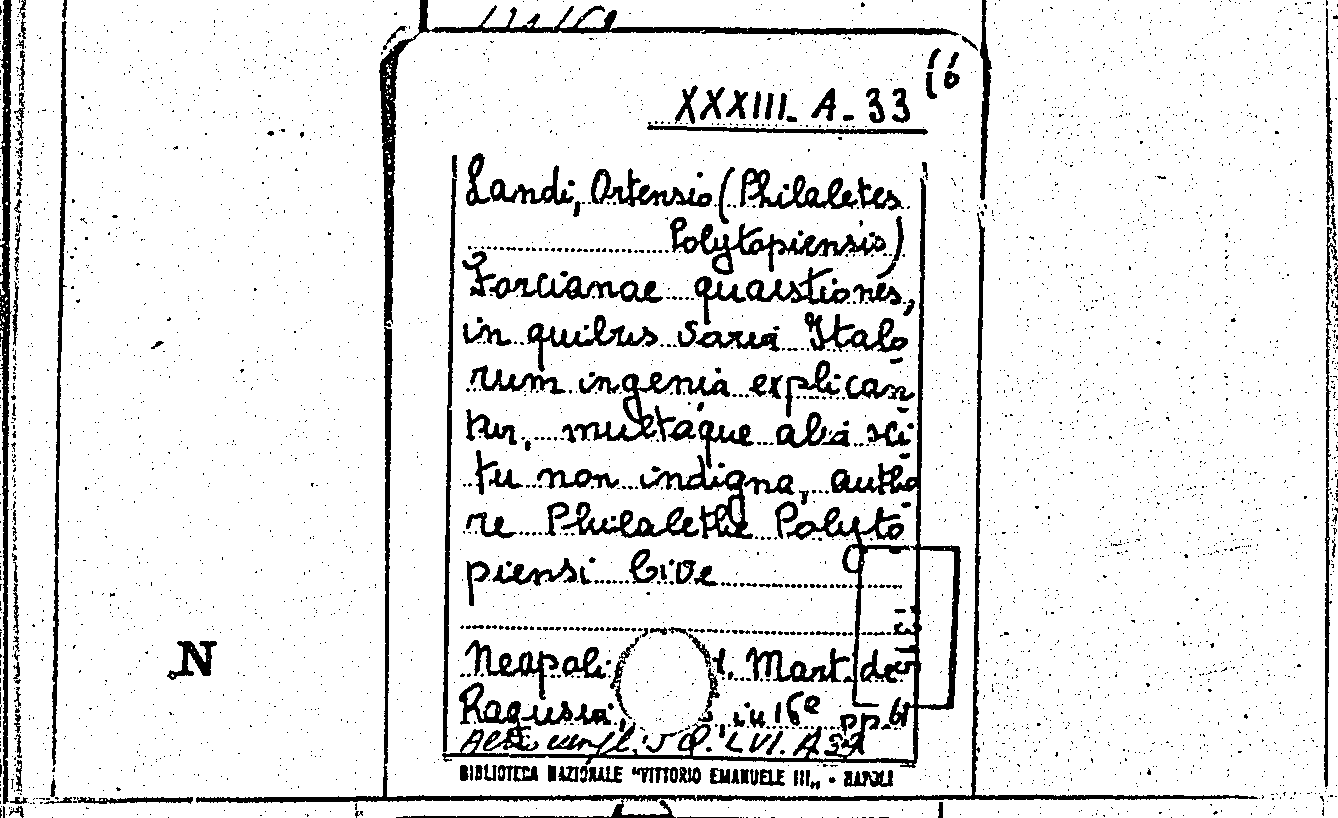 16
XXXIII. A. 33
Landi, Ortensio (Philaletes
Polytopiensis)
Forcianae quaestiones,
in quibus varia Italo
rum ingenia explican
tur, multaque alia sci
tu non indigna, autho
re Philalethe Polyto
piensi Cive
Neapoli Mart. de
Ragusia, in 16º pp. 61
LVI. A
N
BIBLIOTECA NAZIONALE "VITTORIO EMANUELE III„ - NAPOLI